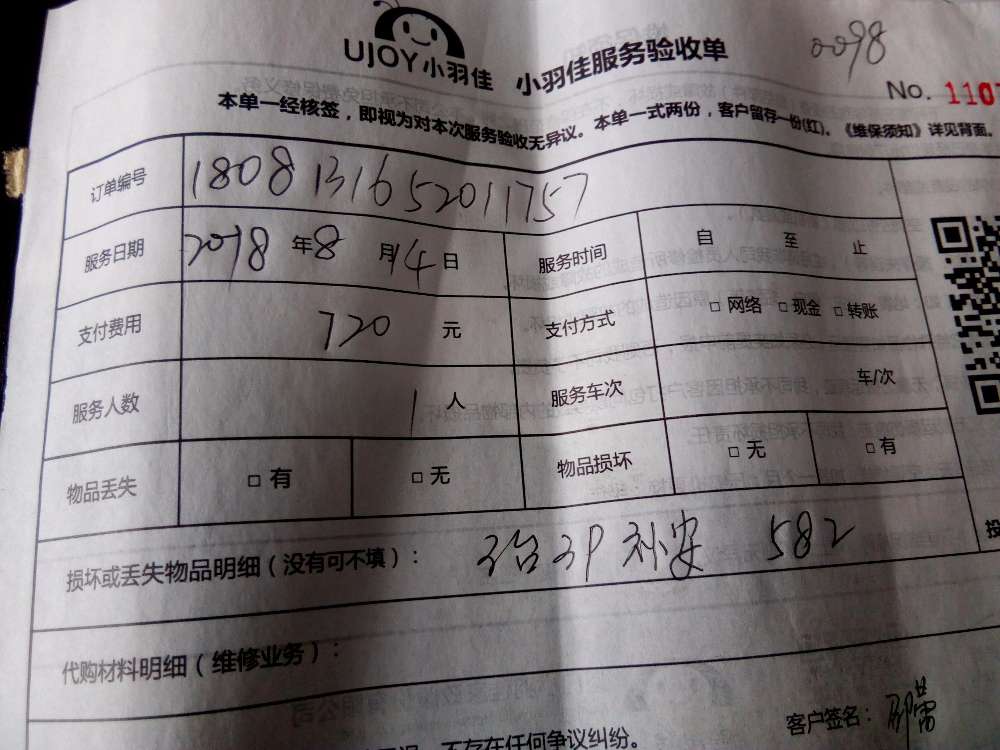 UJOY小羽佳 小羽佳服务验收单 0098
No. 1107
本单一经核签，即视为对本次服务验收无异议。本单一式两份，客户留存一份(红)。《维保须知》详见背面。
订单编号 1808131652011757
服务日期 2018 年 8 月 14 日 服务时间 自 至 止
支付费用 720 元 支付方式 □ 网络 □ 现金 □ 转账
服务人数 1 人 服务车次 车/次
物品丢失 □ 有 □ 无 物品损坏 □ 无 □ 有
损坏或丢失物品明细（没有可不填）： 2台2P 582
代购材料明细（维修业务）：
客户签名：
不存在任何争议纠纷。